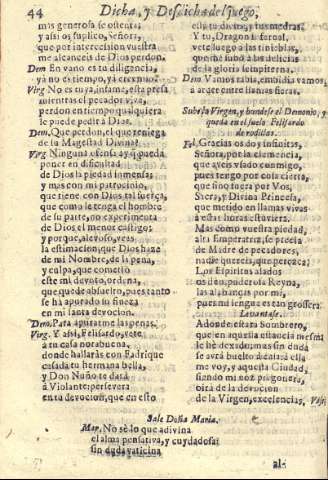 44 Dicha, y Desdicha del juego,
mas generosa se ostenta;
y assi os suplico, Señora,
que por intercession vuestra
me alcanceis de Dios perdon.
Dem En vano es ta diligencia,
ya no es tiempo, ya
Virg No es tuya, infame, esta presa
mientras el pecador viva,
perdon en tiempo qualquiera
le puede pedir à Dios.
Dem. Que perdon, el que reniega
de la Magestad Divina?
Virg Ninguna ofensa ay q̃ pueda
poner en dificultad
de Dios la piedad inmensa;
y mas con mi patrocinio,
que tiene con Dios tal fuerça,
que como le tenga el hombre
de su parte, no experimenta
de Dios el menor castigo;
y porque, alevoso, veas
la estimacion, que Dios haze
de mi Nombre, de la pena,
y culpa, que cometiò
este mi devoto, ordena,
que quede absuelto, pues tanto
se ha apurado su fineza
en mi santa devocion.
Dem. Para apurarme las penas.
Virg. Y assi, Felisardo, vete
à tu casa norabuena,
donde hallaràs con Fadrique
casada tu hermana bella,
y Don Nuño te darà
à Violante: persevera
en tu devocion, que en esto
y tus medras.
Y tu, Dragon infernal,
vete luego à las tinieblas,
que
de la gloria sempiterna.
Dem Vamos rabia, embidia vamos
à arder entre llamas fieras.
Subese la Virgen, y hundese el Demonio, y
queda en el suelo Felisardo
de rodillas.
Fel. Gracias os doy infinitas,
Señora, por la clemencia,
que aveis vsado conmigo,
pues tengo por cosa cierta,
que sino fuera por Vos,
Sacra, y Divina Princesa,
que metido en llamas vivas
à estas horas estuviera.
Mas como vuestra piedad,
alta Emperatriz, se precia
de Madre de pecadores,
nadie quereis, que perezca:
Los Espiritus alados
os dèn, poderosa Reyna,
las alabanças por mi,
pues mi lengua es tan grossera.
Levantase.
Adonde estara Sombrero,
que en aquella estancia mesma
le hè dexado; mas sin duda
se avrà buelto àzia la Aldea
me voy, y aquesta Ciudad,
siendo mi voz pregonera,
oirà de la devocion
de la Virgen, excelencias, Vase
Sale Doña Maria.
Mar. No sè lo que adivina
el alma pensativa, y cuydadosa;
sin duda vaticina
al-